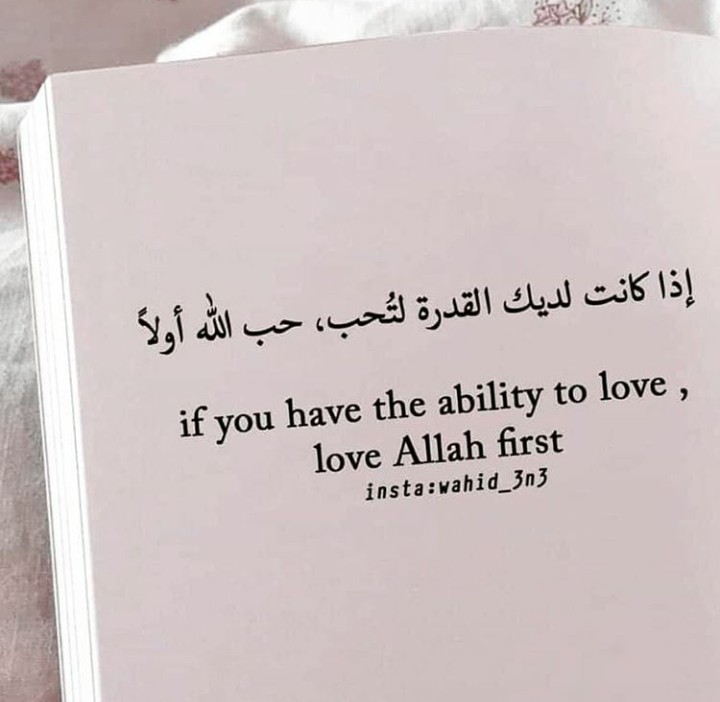 إذا كانت لديك القدرة لتُحب، حب الله أولاً
if you have the ability to love ,
love Allah first
insta:wahid_3n3